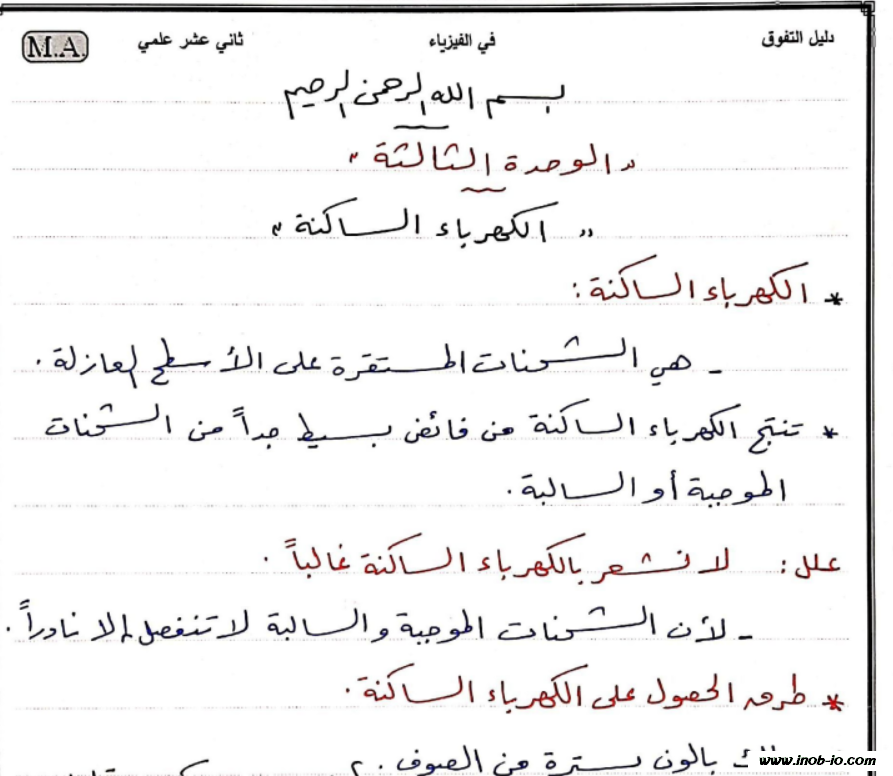 دليل التفوق في الفيزياء ثاني عشر علمي M.A.
بسم الله الرحمن الرحيم
"الوحدة الثالثة"
"الكهرباء الساكنة"
* الكهرباء الساكنة:
- هي الشحنات المستقرة على الأسطح العازلة.
* تنتج الكهرباء الساكنة من فائض بسيط جداً من الشحنات
الموجبة أو السالبة.
علل: لا نشعر بالكهرباء الساكنة غالباً.
- لأن الشحنات الموجبة والسالبة لا تنفصل إلا نادراً.
* طرق الحصول على الكهرباء الساكنة.
بالون بسترة من الصوف. ٢
www.inob-io.com